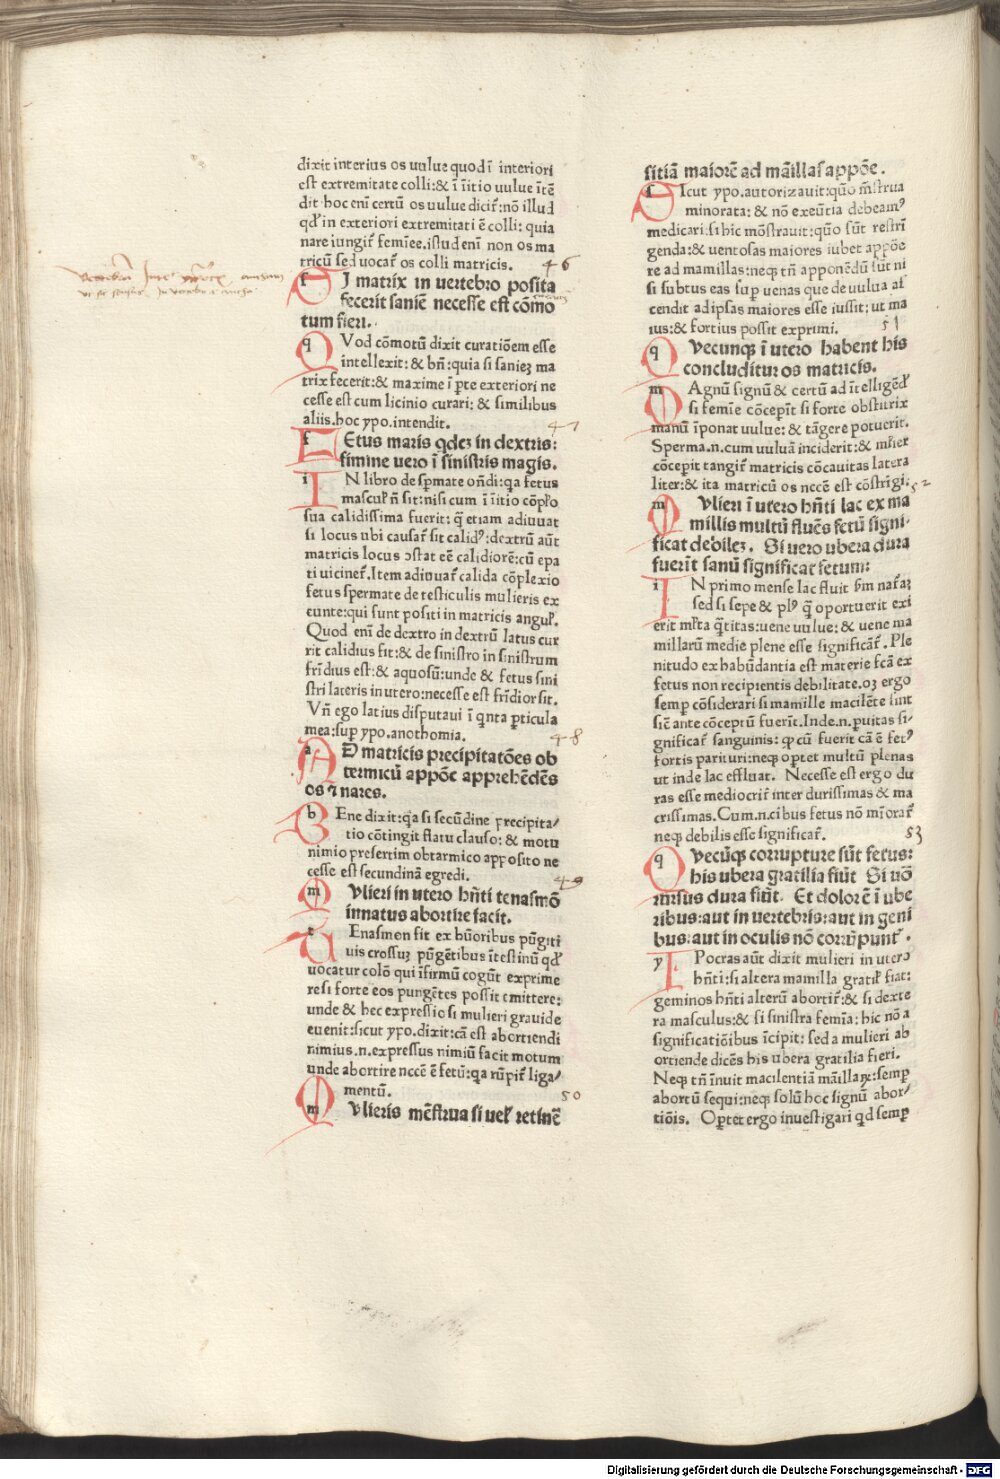 dixit interius os uulue quod ī interiori
est extremitate colli: & ī ītio uulue ītē
dit hoc enī certū os uulue dicit̄: nō illud
qđ in exteriori extremitati ē colli: quia
nare iungit̄ femīee. istud enī non os ma
tricū sed uocat̄ os colli matricis.
46
SI matrix in uertebro posita
fecerit saniē necesse est cōmo
tum fieri.
QVod cōmotū dixit curatiōem esse
intellexit: & bn̄: quia si saniez ma
trix fecerit: & maxime ī p̱te exteriori ne
cesse est cum licinio curari: & similibus
aliis. hoc ypo. intendit.
47
FEtus maris qdez in dextris:
fimine uero ī sinistris magis.
IN libro de sp̱mate on̄di: qa fetus
mascul' n̄ sit: nisi cum ī ītio cōpl'o
sua calidissima fuerit: q̄ etiam adiuuat
si locus ubi causat̄ sit calid': dextrū aūt
matricis locus ↄstat eē calidiorē: cū epa
ti uicinet̄. Item adiuuat̄ calida cōplexio
fetus spermate de testiculis mulieris ex
eunte: qui sunt positi in matricis angul'.
Quod enī de dextro in dextrū latus cur
rit calidius fit: & de sinistro in sinistrum
fr̄idius est: & aquosū: unde & fetus sini
stri lateris in utero: necesse est fr̄idior sit.
Vn̄ ego latius disputaui ī q̄nta p̱ticula
mea: sup̱ ypo. anothomia.
48
AD matricis precipitatōes ob
termicū appōe apprehēdēs
os ⁊ nares.
BEne dixit: q̄a si secūdine precipita/
tio cōtingit flatu clauso: & motu
nimio presertim obtarmico apposito ne
cesse est secundinā egredi.
49
MVlieri in utero hn̄ti tenasmō
innatus abortire facit.
TEnasmon fit ex hūoribus pūgiti
uis crossuz pūgētibus ītestinū qđ
uocatur colō qui īfirmū cogūt exprime
re si forte eos pungētes possit emittere:
unde & hec expressio si mulieri grauide
euenit: sicut ypo. dixit: cā est abortiendi
nimius. n. expressus nimiū facit motum
unde abortire nccē ē fetū: qa rūpit̄ liga/
mentū.
50
MVlieris mēstrua si uel' retinē
sitiā maiorē ad māillas appōe.
SIcut ypo. autorizauit: quō m̄strua
minorata: & nō exeūtia debeam'
medicari: si hic mōstrauit: quō sūt restrī
genda: & uentosas maiores iubet appōe
re ad mamillas: neq; tn̄ apponēdū sūt ni
si subtus eas sup̱ uenas que de uulua as
cendit ad ipsas maiores esse iussit: ut ma
ius: & fortius possit exprimi.
51
QVecunq; ī utero habent his
concluditur os matricis.
MAgnū signū & certū ad ītelligēđ
si femīe cōcepīt si forte obstitrix
manū īponat uulue: & tāgere potuerit.
Sperma. n. cum uuluā inciderit: & ml'ier
cōcepit tangit̄ matricis cōcauitas latera
liter: & ita matricū os nccē est cōstrīgi.
52
MVlieri ī utero hn̄ti lac ex ma
millis multū fluēs fetū signi-
ficat debilez. Si uero ubera dura
fuerīt sanū significat fetum:
IN primo mense lac fluit ſm nat̄az
sed si sepe & pl' q̄ oportuerit exi
erit ml'ta q̄titas: uene uulue: & uene ma
millarū medie plene esse significāt̄. Ple
nitudo ex habūdantia est materie fcā ex
fetus non recipientis debilitate. oz ergo
semp̱ cōsiderari si mamille macilēte sint
siē ante cōceptū fuerīt. Inde. n. p̱uitas si-
gnificat̄ sanguinis: q̱ cū fuerit cā ē fet'
fortis parituri: neq; optet multū plenas
ut inde lac effluat. Necesse est ergo du
ras esse mediocrit̄ inter durissimas & ma
crissimas. Cum. n. cibus fetus nō mīorat̄
neq; debilis esse significat̄.
53
QVecūq; corrupture sūt fetus:
his ubera gracilia fiūt Si uō
rursus dura fiūt. Et dolorē ī ube
ribus: aut in uertebris: aut in geni
bus: aut in oculis nō corrūpunt̄.
YPocras aūt dixit mulieri in utero
hn̄ti: si altera mamilla gracil' fiat:
geminos hn̄ti alterū abortit̄: & si dexte
ra masculus: & si sinistra femīa: hic nō a
significatiōibus īcipit: sed a mulieri ab
ortiende dicēs his ubera gratilia fieri.
Neq; tn̄ īnuit macilentiā māillaꝝ: semp̱
abortū sequi: neq; solū hec signū abor/
tiōis. Op̱tet ergo inuestigari qđ semp̱
Digitalisierung gefördert durch die Deutsche Forschungsgemeinschaft - DFG